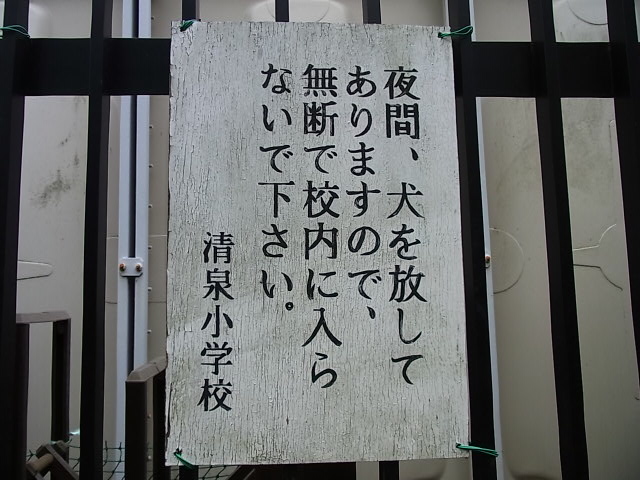 夜間、犬を放して
ありますので、
無断で校内に入ら
ないで下さい。
清泉小学校